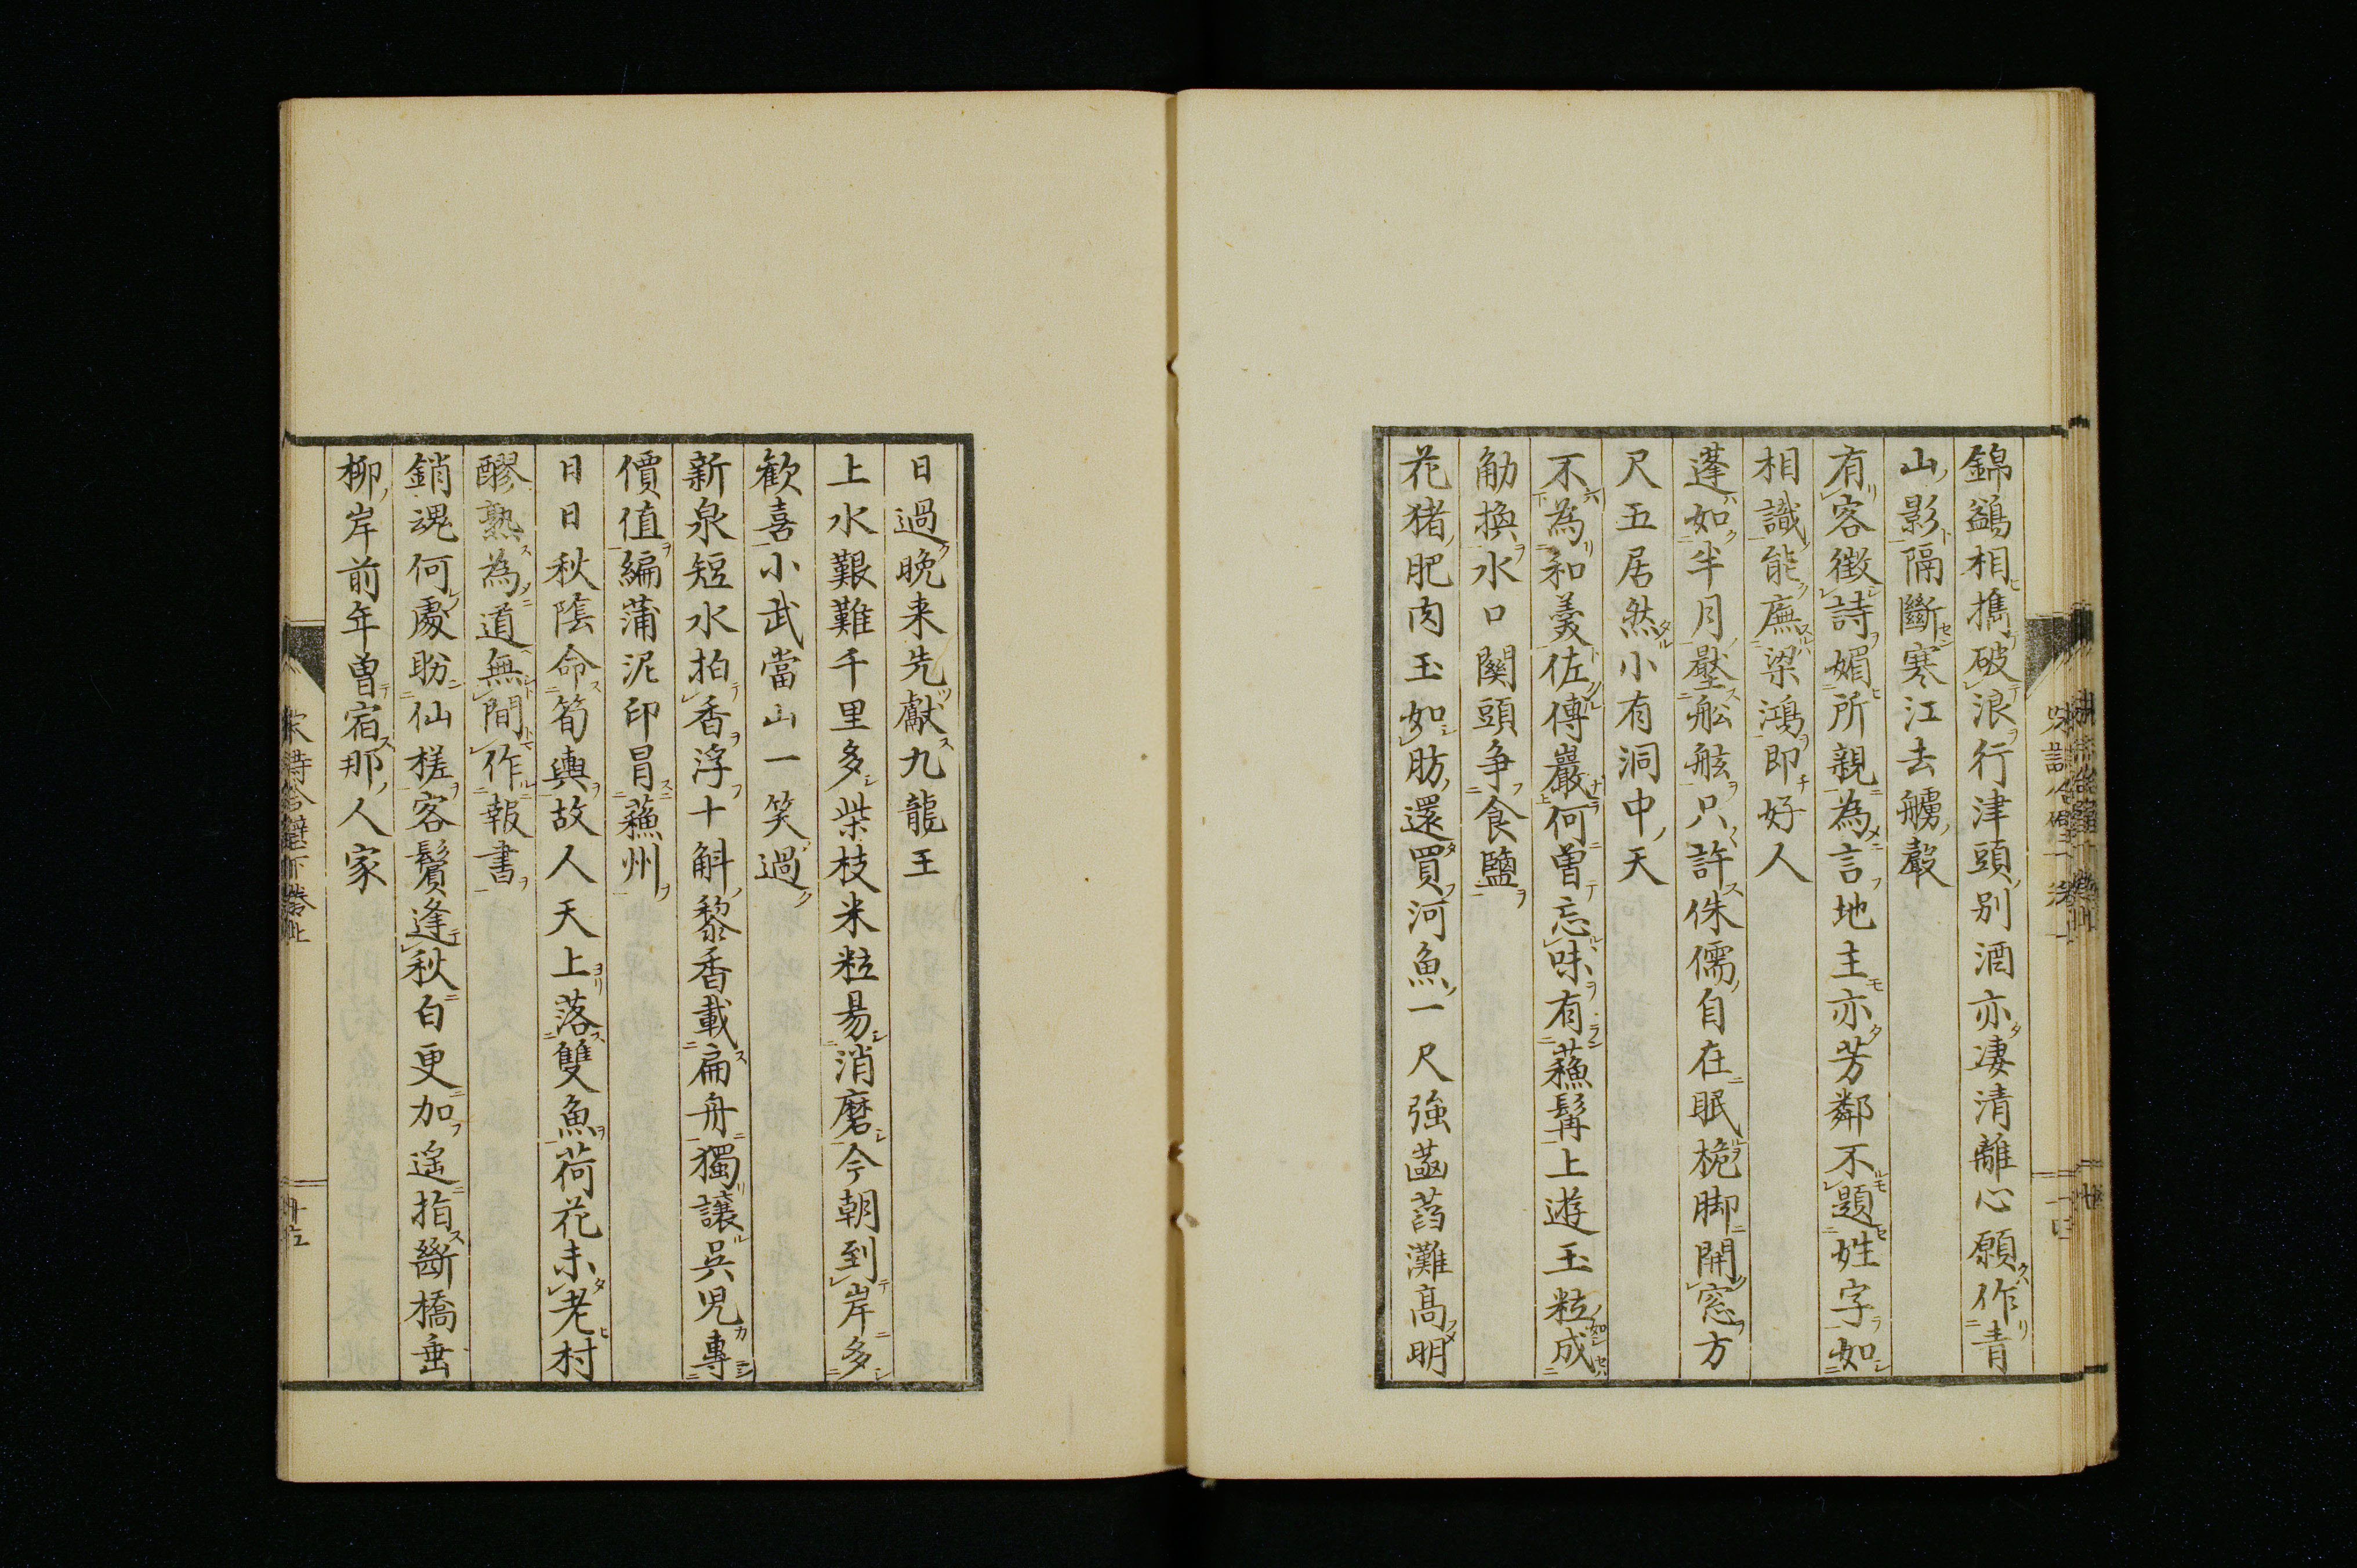 錦鷁相攜破浪行津頭別酒亦凄清離心願作青
山影隔斷寒江去艣聲
有客徴詩媚所親為言地主亦芳鄰不題姓字如
相識能廡梁鴻即好人
蓬如半月壓舩舷只許侏儒自在眠桅脚開窓方
尺五居然小有洞中天
不為和羹佐傳巖何曽忘味有蘓髯上遊玉粒成
舫換水口關頭争食鹽
花猪肥肉玉如肪還買河魚一尺強菡萏灘高明
日過晩来先獻九龍王
上水艱難千里多柴枝米粒易消磨今朝到岸多
歓喜小武當山一笑過
新泉短水拍香浮十斛黎香載扁舟獨譲呉児專
價值編蒲泥印冒蘓州
日日秋陰命筍輿故人天上落雙魚荷花未老村
醪熟為道無間作報書
銷魂何處盼仙槎客鬢逢秋白更加遥指斷橋垂
柳岸前年曽宿那人家